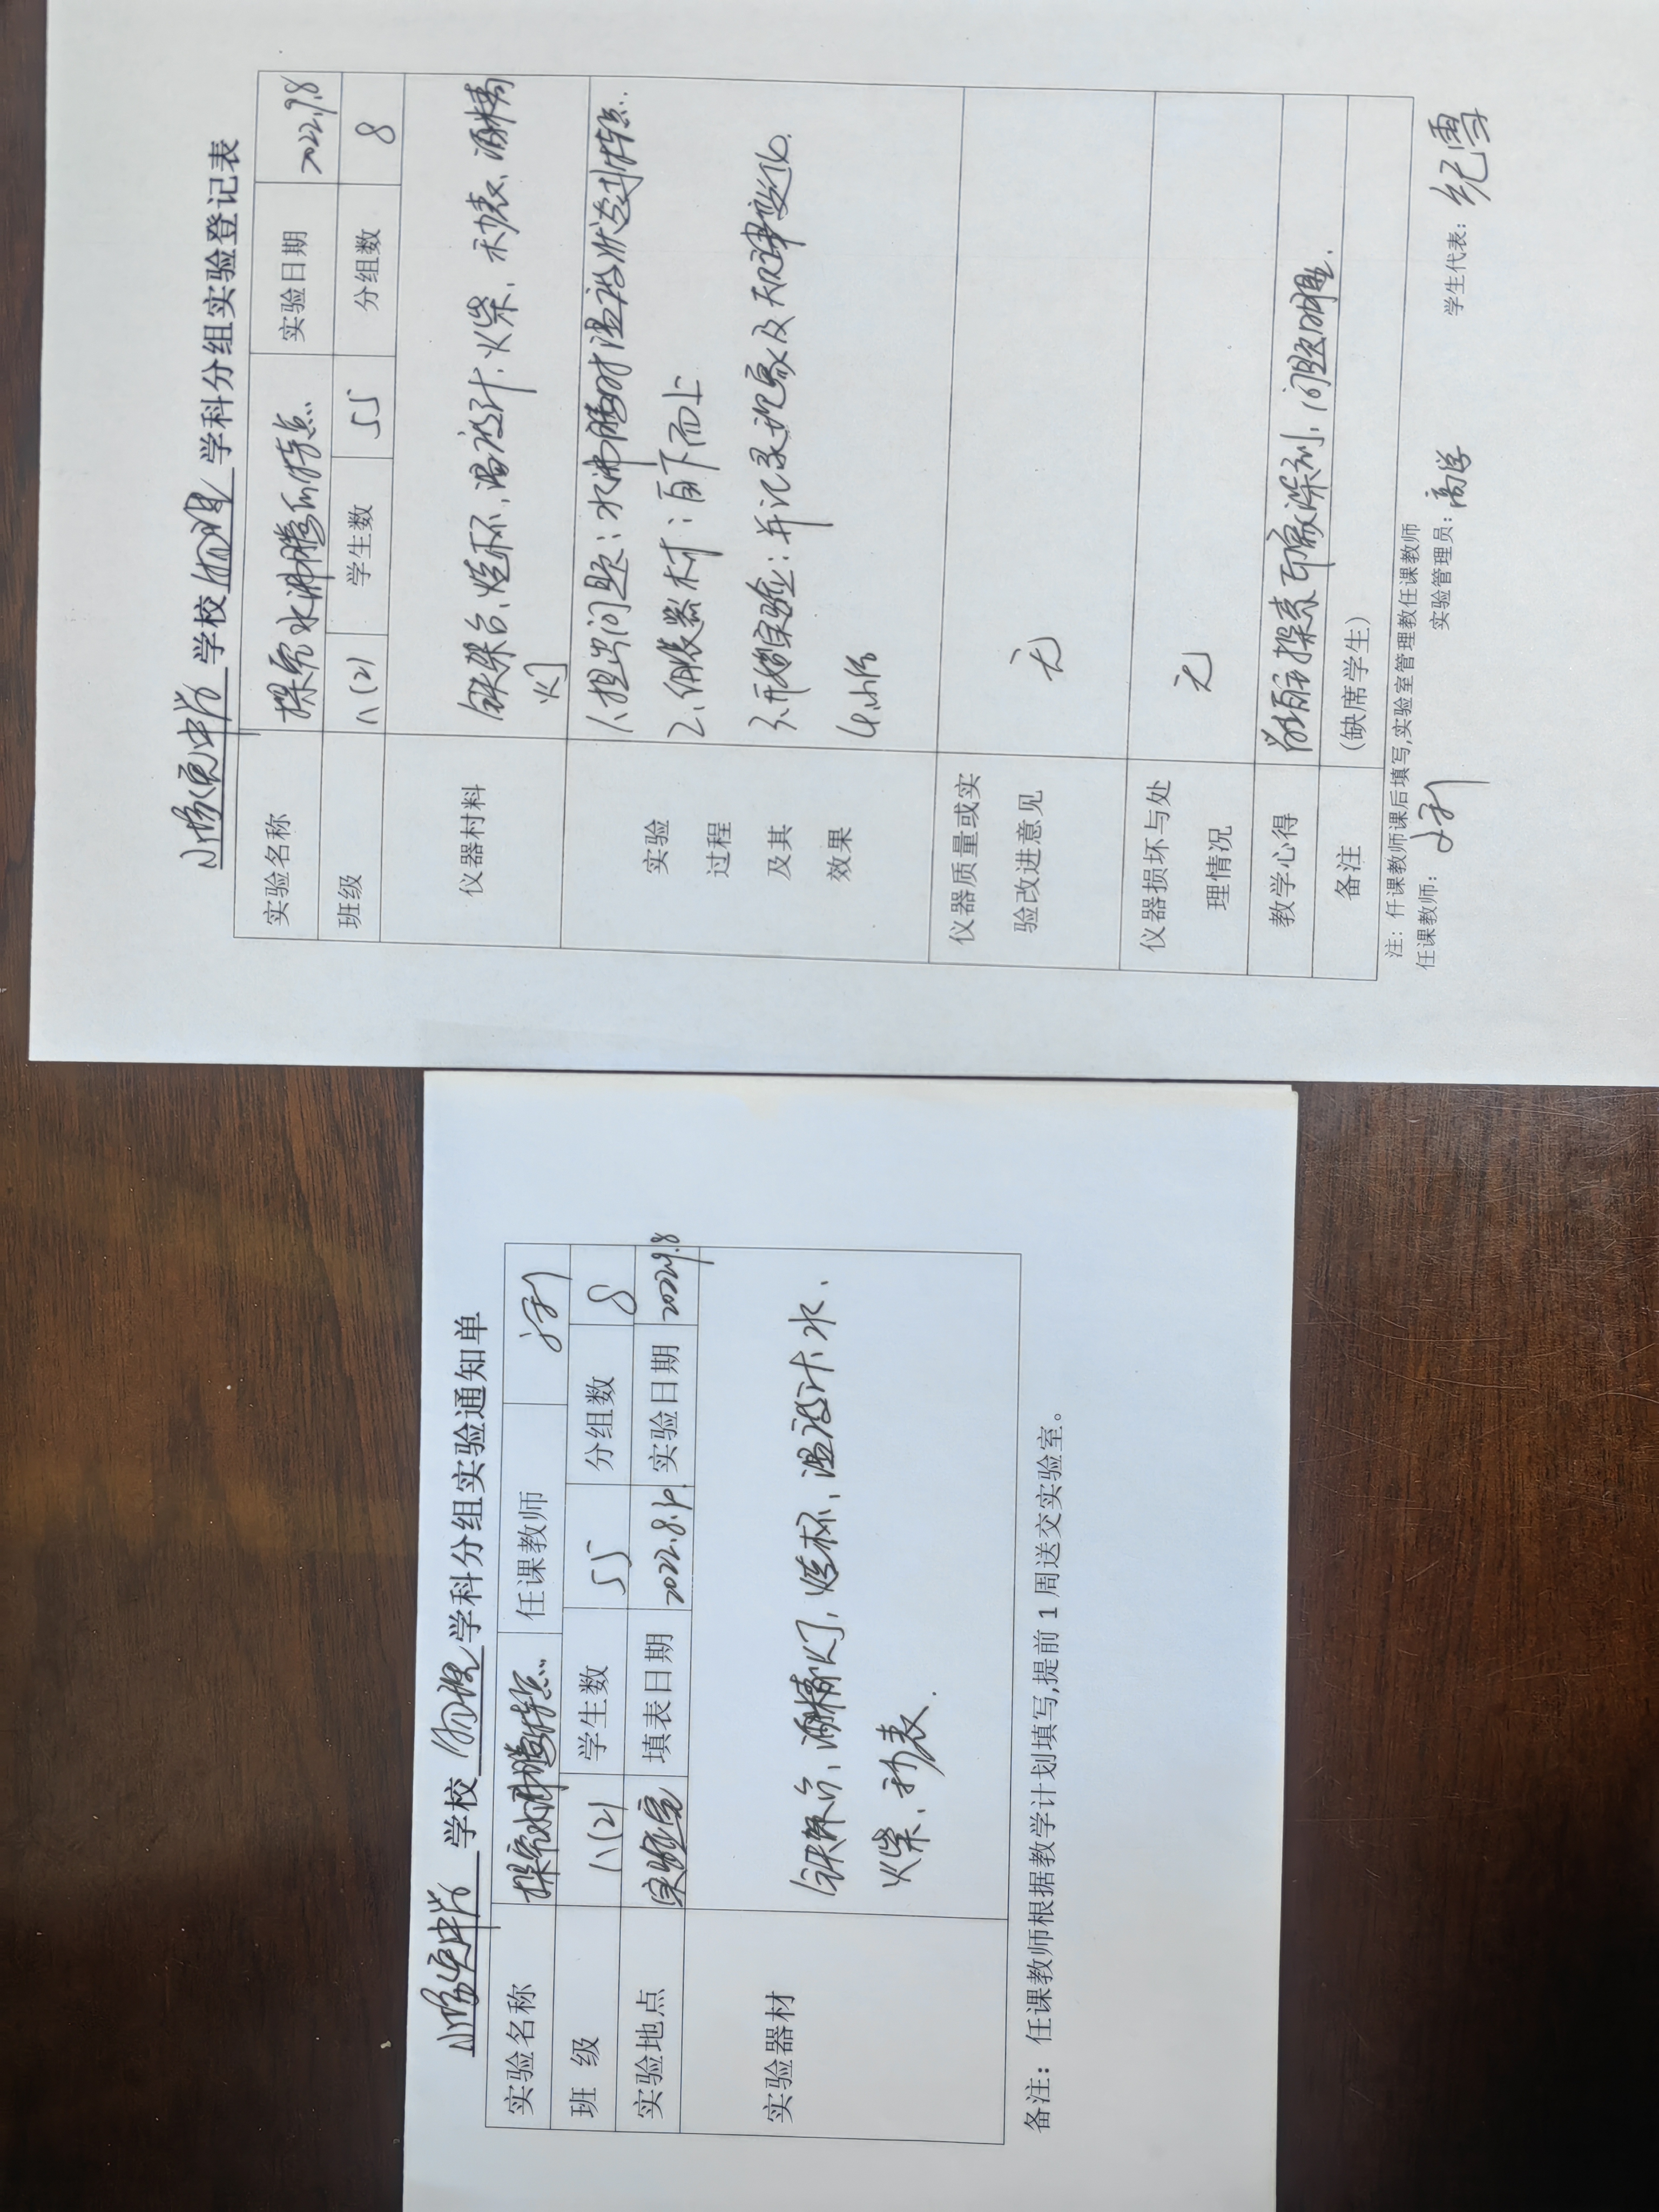 学校 物理 学科分组实验登记表
实验名称 探究水沸腾的特点 实验日期 2022.9.8
班级 八(2) 学生数 55 分组数 8
仪器村料 铁架台、烧杯、温度计、火柴、秒表、酒精
灯
实验
过程
及其
效果
1、提出问题：水沸腾时温度状态
2、组装器材：自下而上
3、开始实验：并记录现象及
4、小结
仪器质量或实
验改进意见
无
仪器损坏与处
理情况
无
教学心得 探索印象深刻、问题明确.
备注 (缺席学生)
注：仟课教师课后填写,实验室管理教任课教师
任课教师： 实验管理员： 学生代表：纪雪
学校 物理 学科分组实验通知单
实验名称 探究水沸腾特点 任课教师
班 级 八(2) 学生数 55 分组数 8
实验地点 实验室 填表日期 实验日期
实验器材
铁架台、酒精灯、烧杯、温度计、水、
火柴、秒表.
备注：任课教师根据教学计划填写,提前 1 周送交实验室。